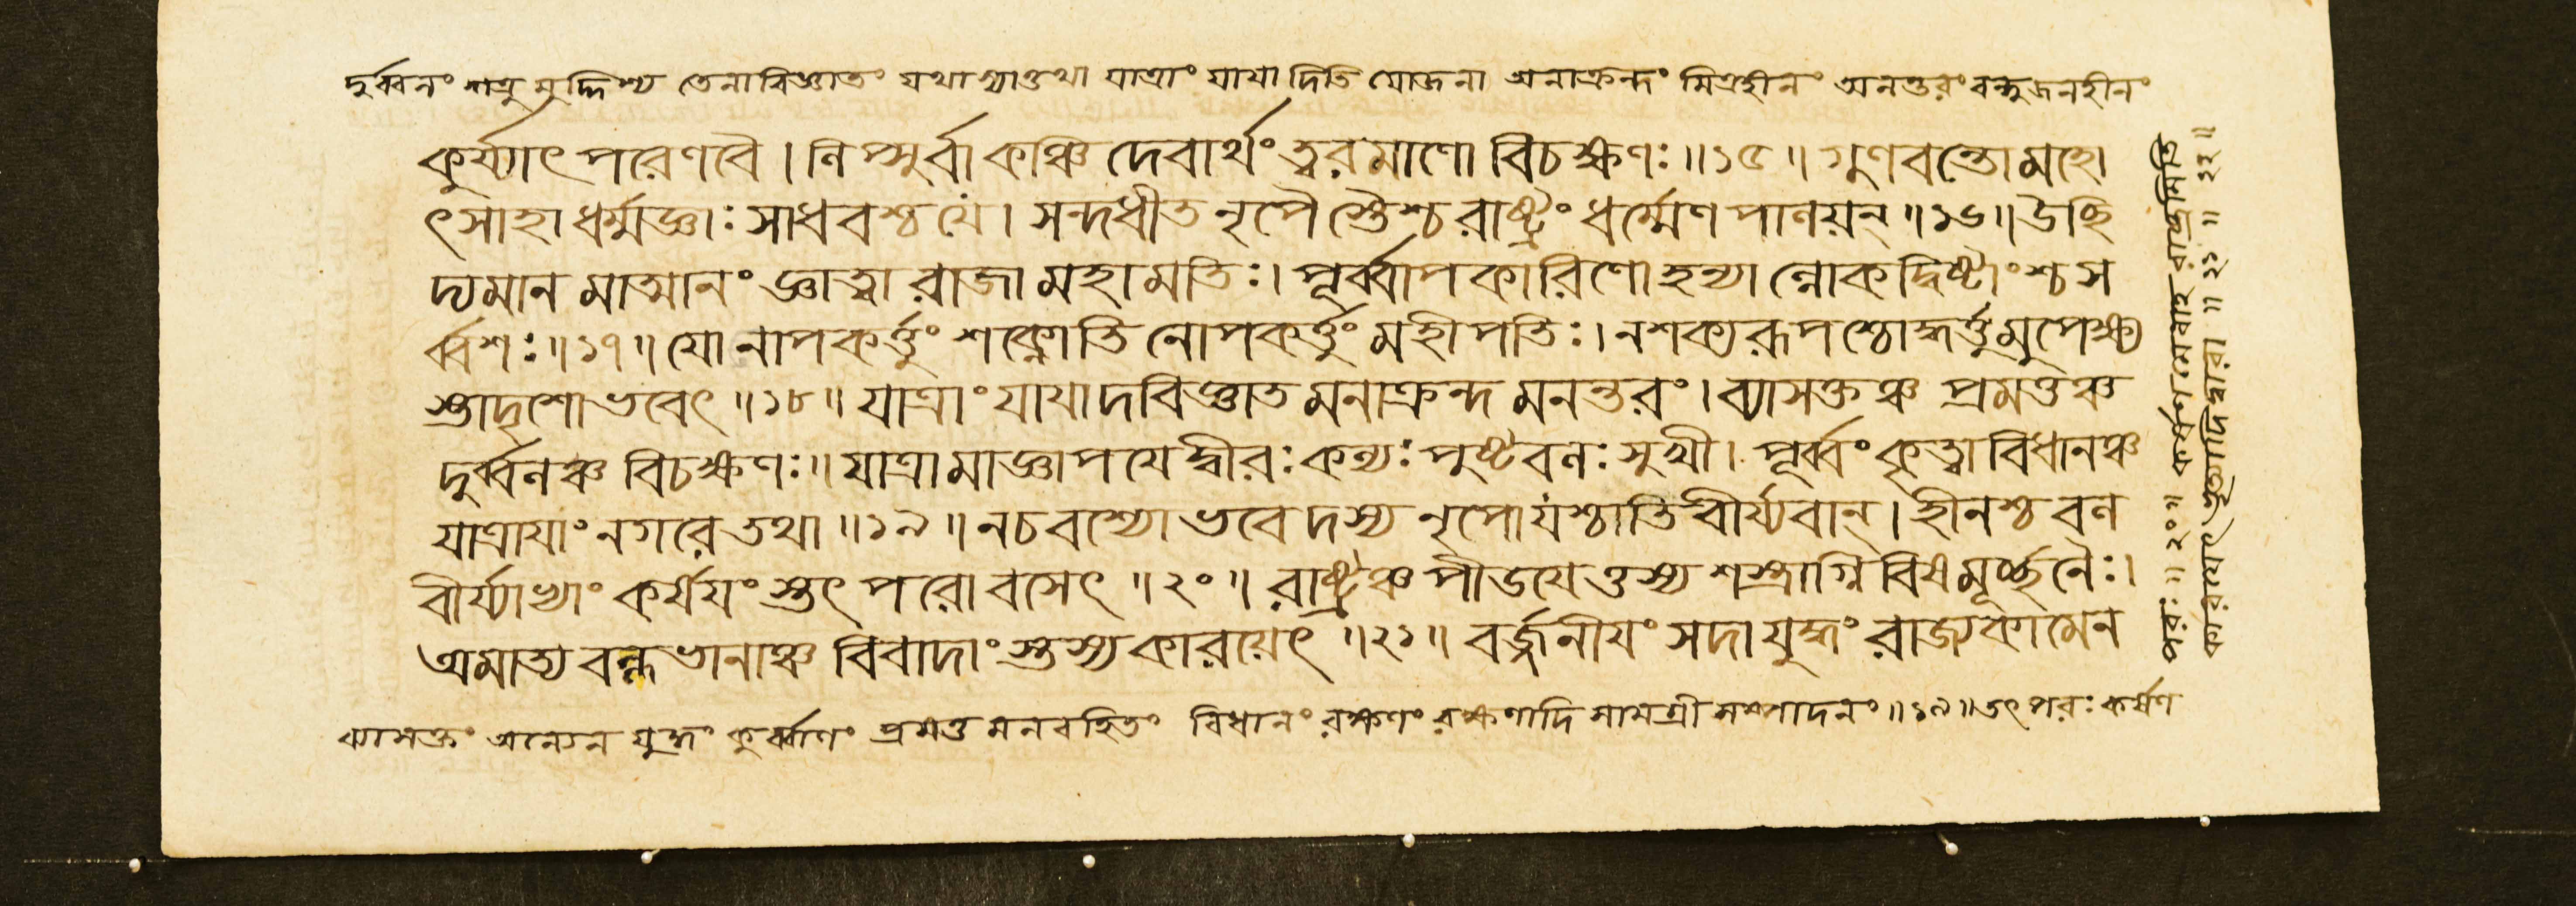 দুর্ব্বলং শত্রুমুদ্দিশ্য তেনাবিজ্ঞাতং যথাস্যাত্তথা যাত্রাং যাযাদিতি যোজনা অনাক্রন্দং মিত্রহীনং অনন্তরং বন্ধুজনহীনং
কুর্য্যাৎ পরেণবৈ। লিপ্সুর্বা কাঞ্চিদেবার্থং ত্বরমাণো বিচক্ষণঃ॥১৫॥ গুণবন্তো মহো
ৎসাহা ধর্ম্মজ্ঞাঃ সাধবশ্চযে। সন্দধীত নৃপৈস্তৈশ্চ রাষ্ট্রং ধর্ম্মেণ পালয়ন্॥১৬॥ উচ্ছি
দ্যমানমাত্মানং জ্ঞাত্বা রাজা মহামতিঃ। পূর্ব্বাপকারিণো হন্যাল্লোকদ্বিষ্টাংশ্চ স
র্ব্বশঃ॥১৭॥ যো নাপকর্ত্তুং শক্নোতি নোপকর্ত্তুং মহীপতিঃ। নশক্যরূপশ্চোদ্ধর্ত্তুমুপেক্ষ্য
স্তাদৃশো ভবেৎ॥১৮॥ যাত্রাং যাযাদবিজ্ঞাতমনাক্রন্দমনন্তরং। ব্যাসক্তঞ্চ প্রমত্তঞ্চ
দুর্ব্বলঞ্চ বিচক্ষণঃ॥ যাত্রামাজ্ঞাপযেদ্বীরঃ কল্যঃ পুষ্টবলঃ সুখী। পূর্ব্বং কৃত্বা বিধানঞ্চ
যাত্রাযাং নগরে তথা॥১৯॥ নচ বশ্যো ভবেদস্য নৃপো যশ্চাতি বীর্য্যবান্। হীনশ্চ বল
বীর্য্যাভ্যাং কর্ষযংস্তৎ পরো বসেৎ॥২০॥ রাষ্ট্রঞ্চ পীডযেত্তস্য শস্ত্রাগ্নি বিষমূর্চ্ছনৈঃ।
অমাত্য বল্লভানাঞ্চ বিবাদাংস্তস্য কারয়েৎ॥২১॥ বর্জ্জনীযং সদা যুদ্ধং রাজ্যকামেন
ব্যাসক্তং অন্যেন যুদ্ধং কুর্ব্বাণং প্রমত্তমনবহিতং বিধানং রক্ষণং রক্ষণাদি সামগ্রী সম্পাদনং॥১৯॥ তৎ পরঃ কর্ষণ
পরঃ॥২০॥ কর্ষণমেবাহ রাষ্ট্রমিতি
কারযেৎ ভৃত্যাদিদ্বারা॥২১॥২২॥